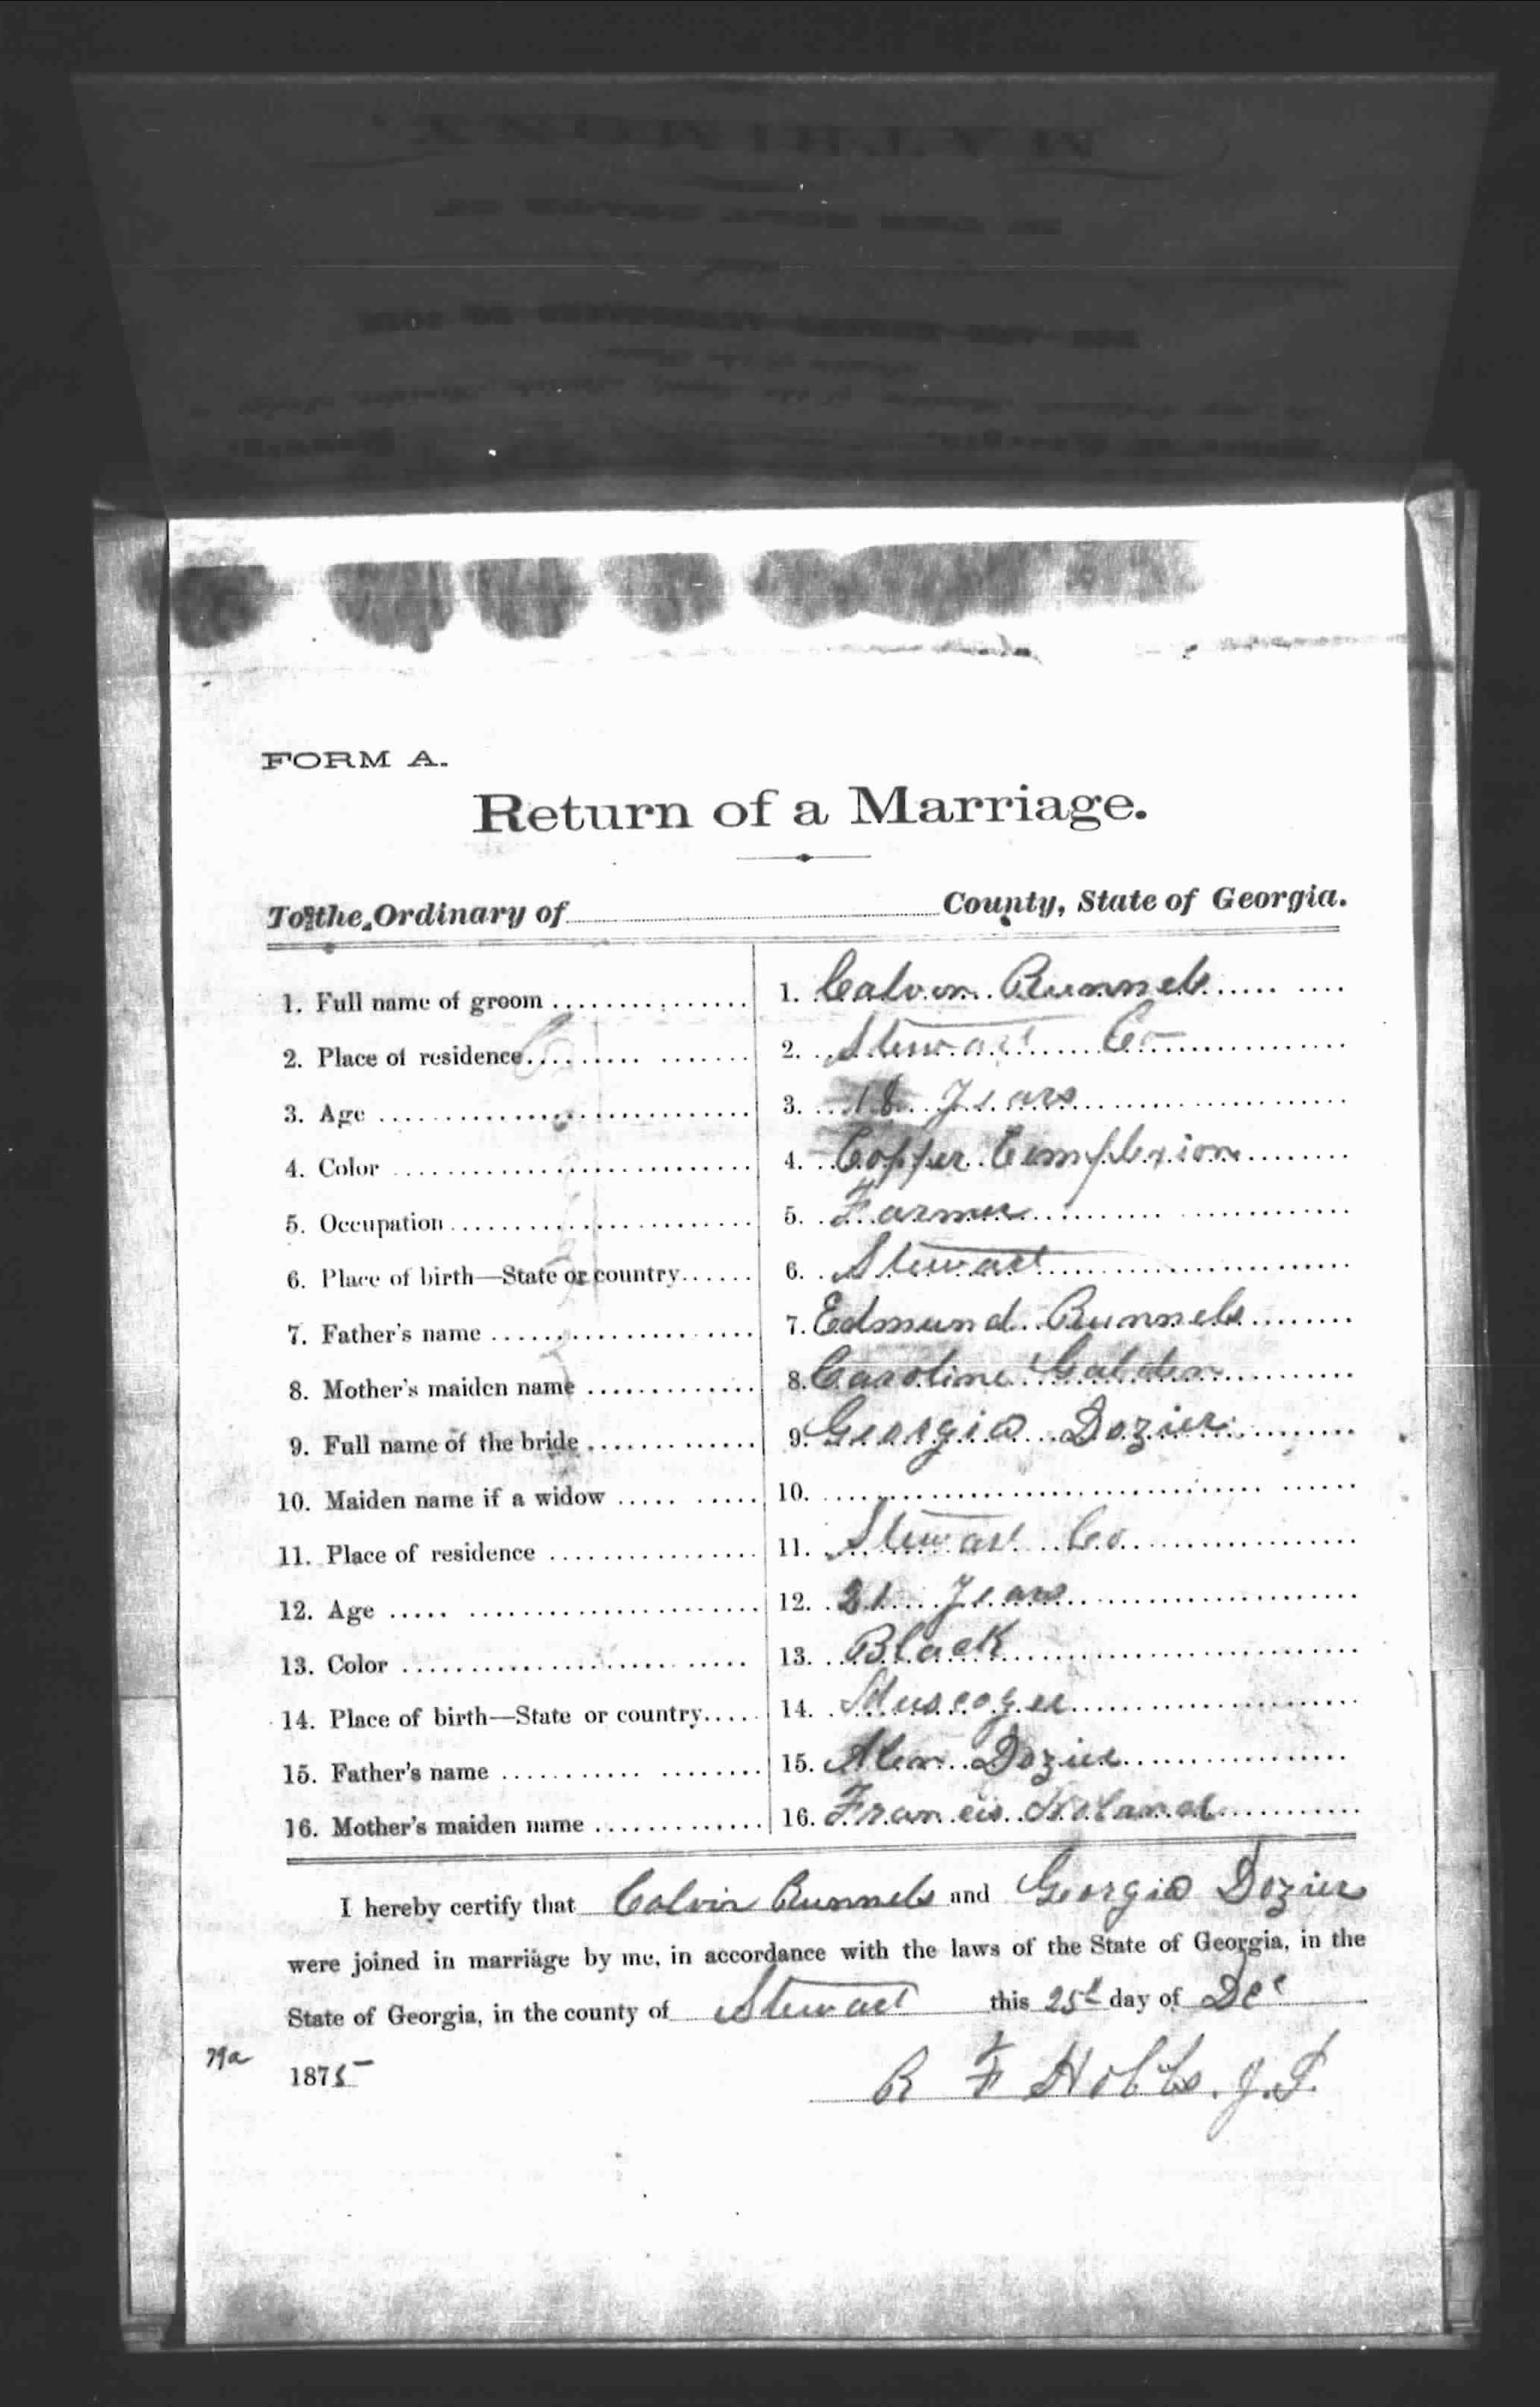 FORM A.
Return of a Marriage.
To the Ordinary of County, State of Georgia.
1. Full name of groom 1. Calvin Runnels
2. Place of residence 2. Stewart Co
3. Age 3. 18 Years
4. Color 4. Copper Complexion
5. Occupation 5. Farmer
6. Place of birth—State or country 6. Stewart
7. Father's name 7. Edmund Runnels
8. Mother's maiden name 8. Caroline
9. Full name of the bride 9. Georgia Dozier
10. Maiden name if a widow 10.
11. Place of residence 11. Stewart Co
12. Age 12. 21 Years
13. Color 13. Black
14. Place of birth—State or country 14. Muscogee
15. Father's name 15. Dozier
16. Mother's maiden name 16. Francis Holand
I hereby certify that Calvin Runnels and Georgia Dozier
were joined in marriage by me, in accordance with the laws of the State of Georgia, in the
State of Georgia, in the county of Stewart this 25t day of Dec
1875
R F Hobbs. J.P.